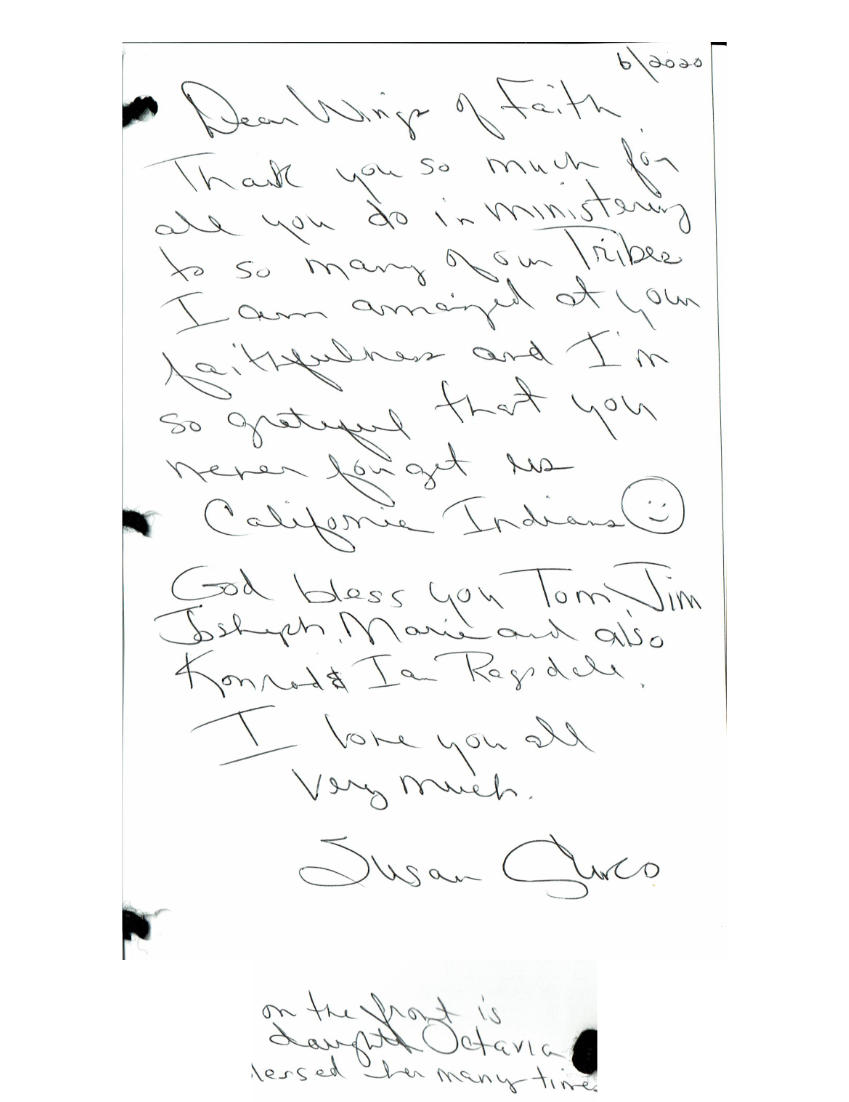 6/2020
Dear Wings of Faith
Thank you so much for
all you do in ministering
to so many of our Tribes
I am amaized at your
faithfulness and I'm
so grateful that you
never forget us
California Indians
God bless you Tom, Jim
Josheph, Marie and also
Konrad & Ian Ragsdale.
I love you all
very much.
Susan
on the front is
daughter Octavia
lessed her many time